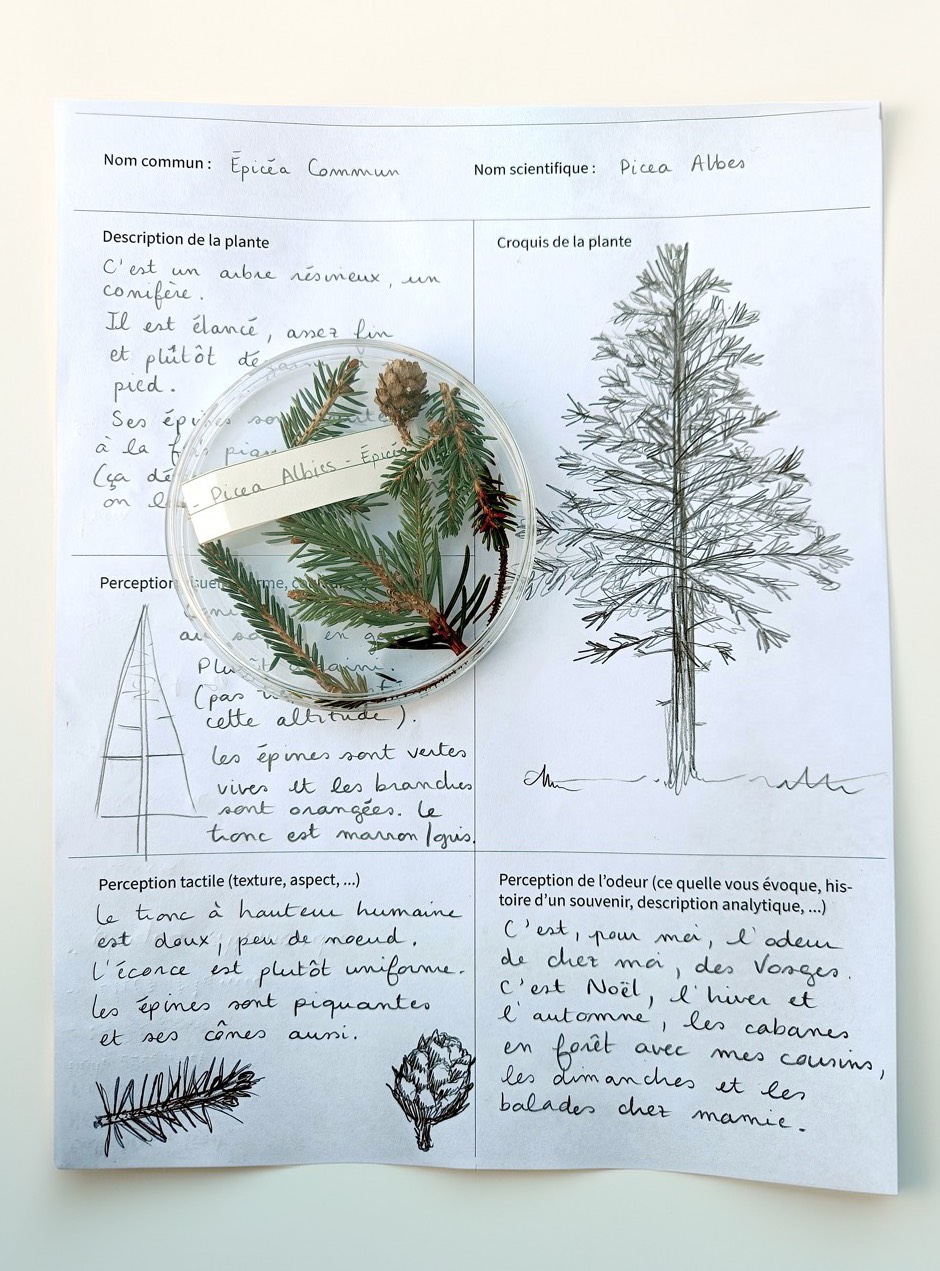 Nom commun : Épicéa Commun
Nom scientifique : Picea Albes
Description de la plante
C'est un arbre résineux, un
conifère.
Il est élancé, assez fin
et plûtôt
pied.
Ses
à la
(ça
on
Picea Albies - Épicéa
Croquis de la plante
Perception
en
Plutôt
(pas
cette altitude).
Les épines sont vertes
vives et les branches
sont orangées. Le
tronc est marron/gris.
Perception tactile (texture, aspect, ...)
Le tronc à hauteur humaine
est doux, peu de noeud.
L'écorce est plutôt uniforme.
Les épines sont piquantes
et ses cônes aussi.
Perception de l'odeur (ce quelle vous évoque, his-
toire d'un souvenir, description analytique, ...)
C'est, pour moi, l'odeur
de chez moi, des Vosges.
C'est Noël, l'hiver et
l'automne, les cabanes
en forêt avec mes cousins,
les dimanches et les
balades chez mamie.